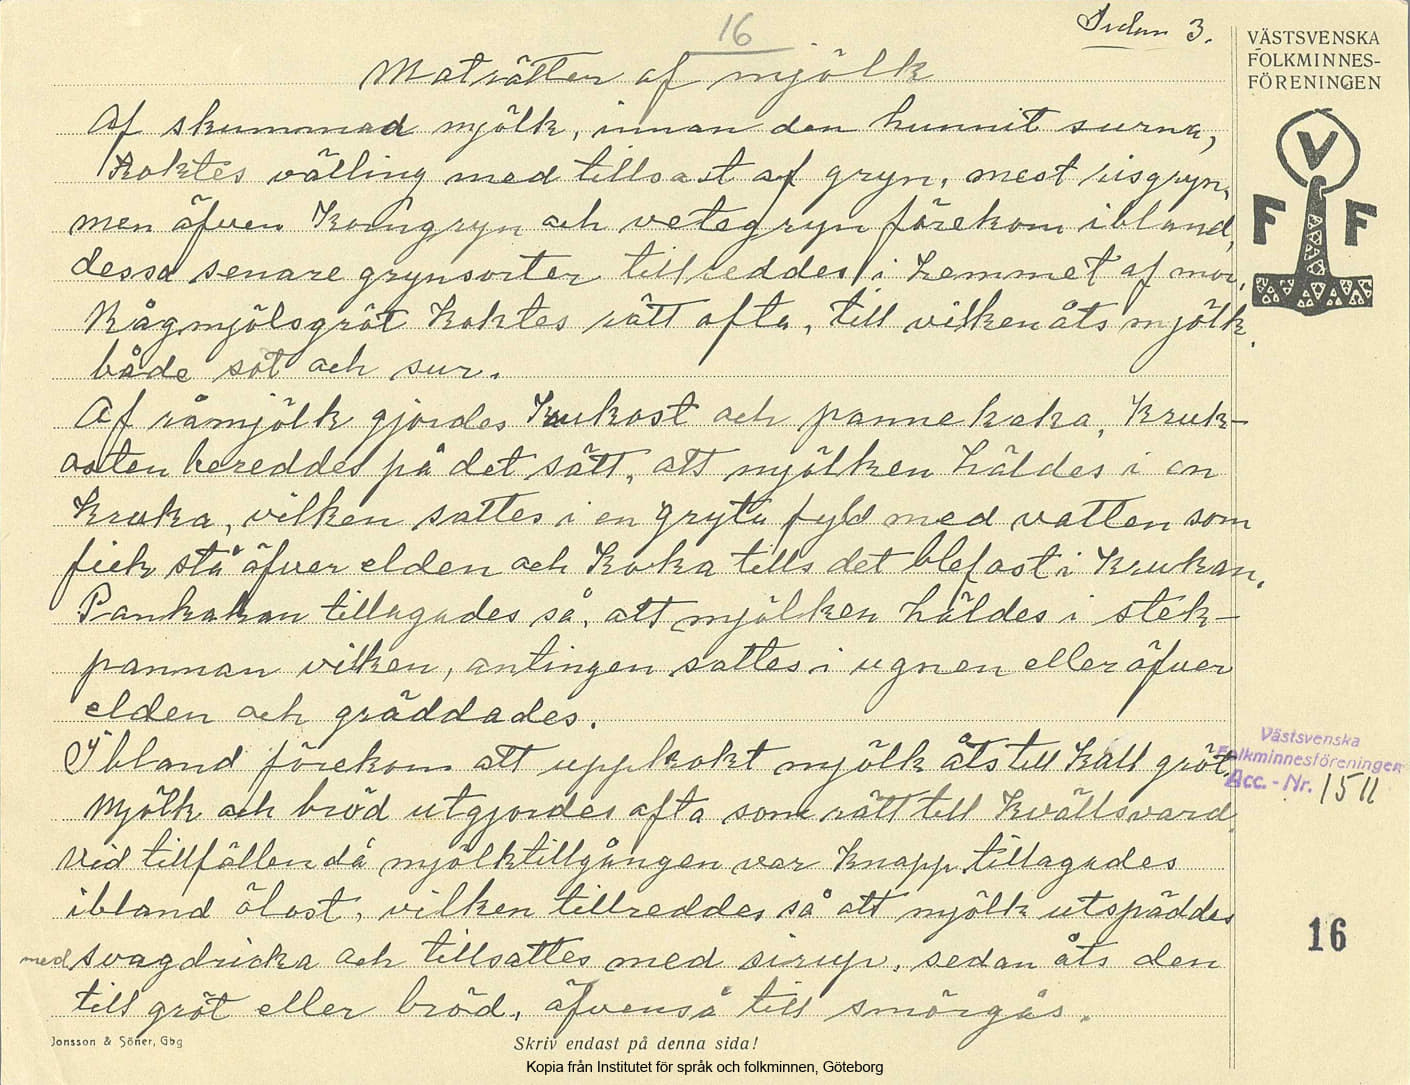 16
Sidan 3.
VÄSTSVENSKA
FOLKMINNES-
FÖRENINGEN
V
F F
Maträtter af mjölk
Af skummad mjölk, innan den hunnit surna,
koktes välling med tillsats af gryn, mest risgryn,
men äfven korngryn och vetegryn förekom ibland,
dessa senare grynsorter tillreddes i hemmet af mor.
Rågmjölsgröt koktes rätt ofta, till vilken åts mjölk,
både söt och sur.
Af råmjölk gjordes krukost och pannekaka, Kruk-
osten bereddes på det sätt, att mjölken häldes i en
kruka, vilken sattes i en gryta fyld med vatten som
fick stå öfver elden och koka tills det blef ost i krukan.
Pankakan tillagades så, att mjölken häldes i stek-
pannan vilken, antingen sattes i ugnen eller öfver
elden och gräddades.
Ibland förekom att uppkokt mjölk åts till kall gröt.
Mjölk och bröd utgjordes ofta som rätt till kvällsvard.
Vid tillfällen då mjölktillgången var knapp tillagades
ibland ölost, vilken tillreddes så att mjölk utspäddes
med svagdricka och tillsattes med sirup, sedan åts den
till gröt eller bröd, äfvenså till smörgås.
Västsvenska
Folkminnesföreningen
Acc. - Nr. 1511
16
Jonsson & Söner, Gbg
Skriv endast på denna sida!
Kopia från Institutet för språk och folkminnen, Göteborg